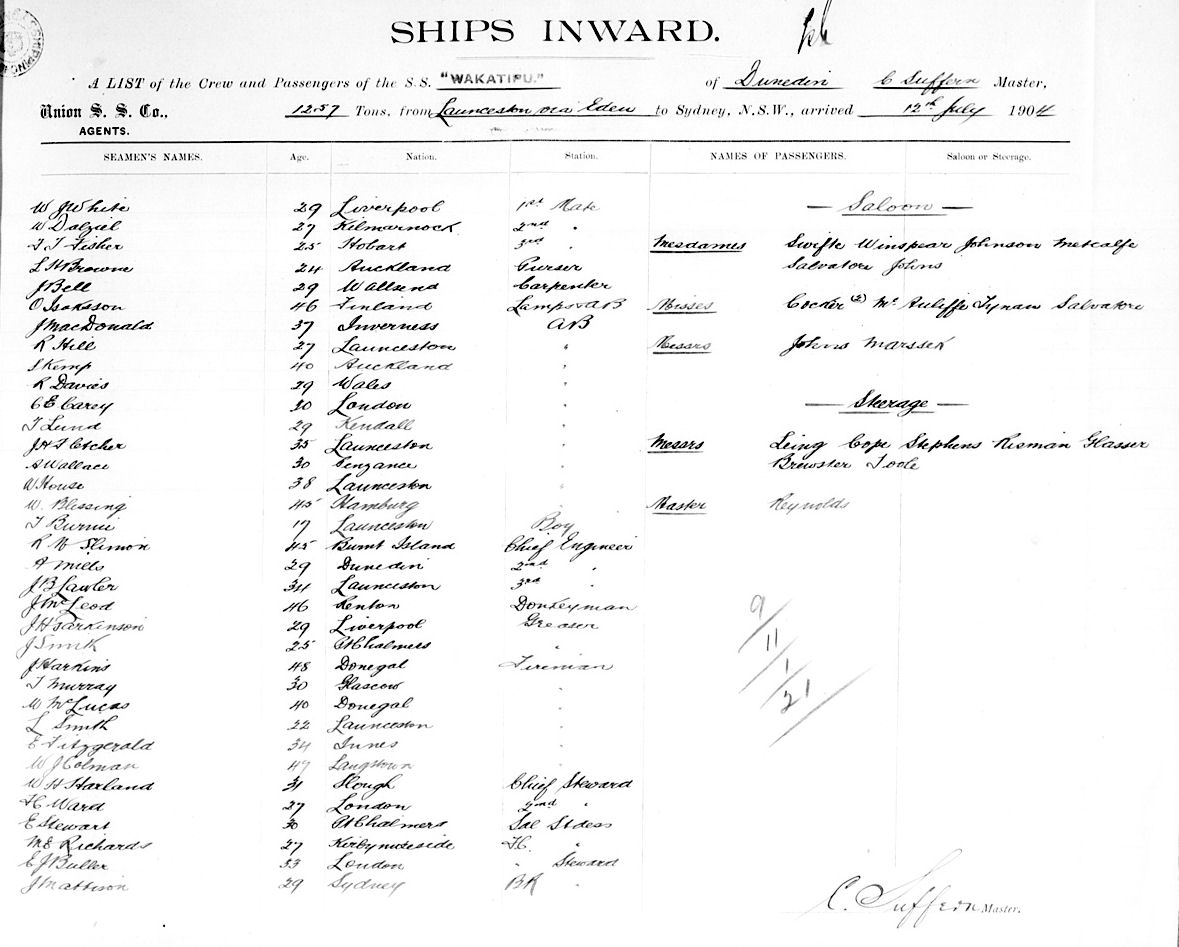 SHIPS INWARD.
A LIST of the Crew and Passengers of the S.S. "WAKATIPU." of Dunedin C Suffern Master,
Union S. S. Co., 1257 Tons, from Launceston via Eden to Sydney, N.S.W., arrived 12th July 1904
AGENTS.
SEAMEN'S NAMES. Age. Nation. Station. NAMES OF PASSENGERS. Saloon or Steerage.
W J White 29 Liverpool 1st Mate — Saloon —
W Dalziel 27 Kilmarnock 2nd "
T T Fisher 25 Hobart 3rd " Mesdames Swifte Winspear Johnson Metcalfe
L H Browne 24 Auckland Purser Salvatore Johns
J Bell 29 Wallsend Carpenter
O Isaksson 46 Finland Lamps & AB Misses Cocker (2) Mc Auliffe Tynan Salvatore
J MacDonald 37 Inverness AB
R Hill 27 Launceston " Messrs Johns Marssek
S Kemp 40 Auckland "
R Davies 29 Wales "
C E Carey 20 London " — Sterage —
T Lund 29 Kendall "
J H Fletcher 35 Launceston " Messrs Leing Cope Stephens Risman Glasser
A Wallace 30 Penzance " Brewster Toole
W House 38 Launceston "
W. Blessing 45 Hamburg " Master Reynolds
T Burnie 17 Launceston Boy
R W Slimon 45 Burnt Island Chief Engineer
A Mills 29 Dunedin 2nd "
J B Lawler 34 Launceston 3rd "
J McLeod 46 Renton Donkeyman
J H Parkinson 29 Liverpool Greaser
J Smith 25 Pt Chalmers "
J Harkins 48 Donegal Fireman
T Murray 30 Glascow "
W McLucas 40 Donegal "
L Smith 22 Launceston "
E Fitzgerald 34 Innes "
W J Colman 47 Langtown "
W H Harland 31 Slough Chief Steward
H Ward 27 London 2nd "
E Stewart 30 Pt Chalmers Sal Stdess
M E Richards 27 Kirbymuteside F.C. "
E J Buller 33 London " Steward
J Mattison 29 Sydney BR "
9/11/1/21
C. Suffern Master.